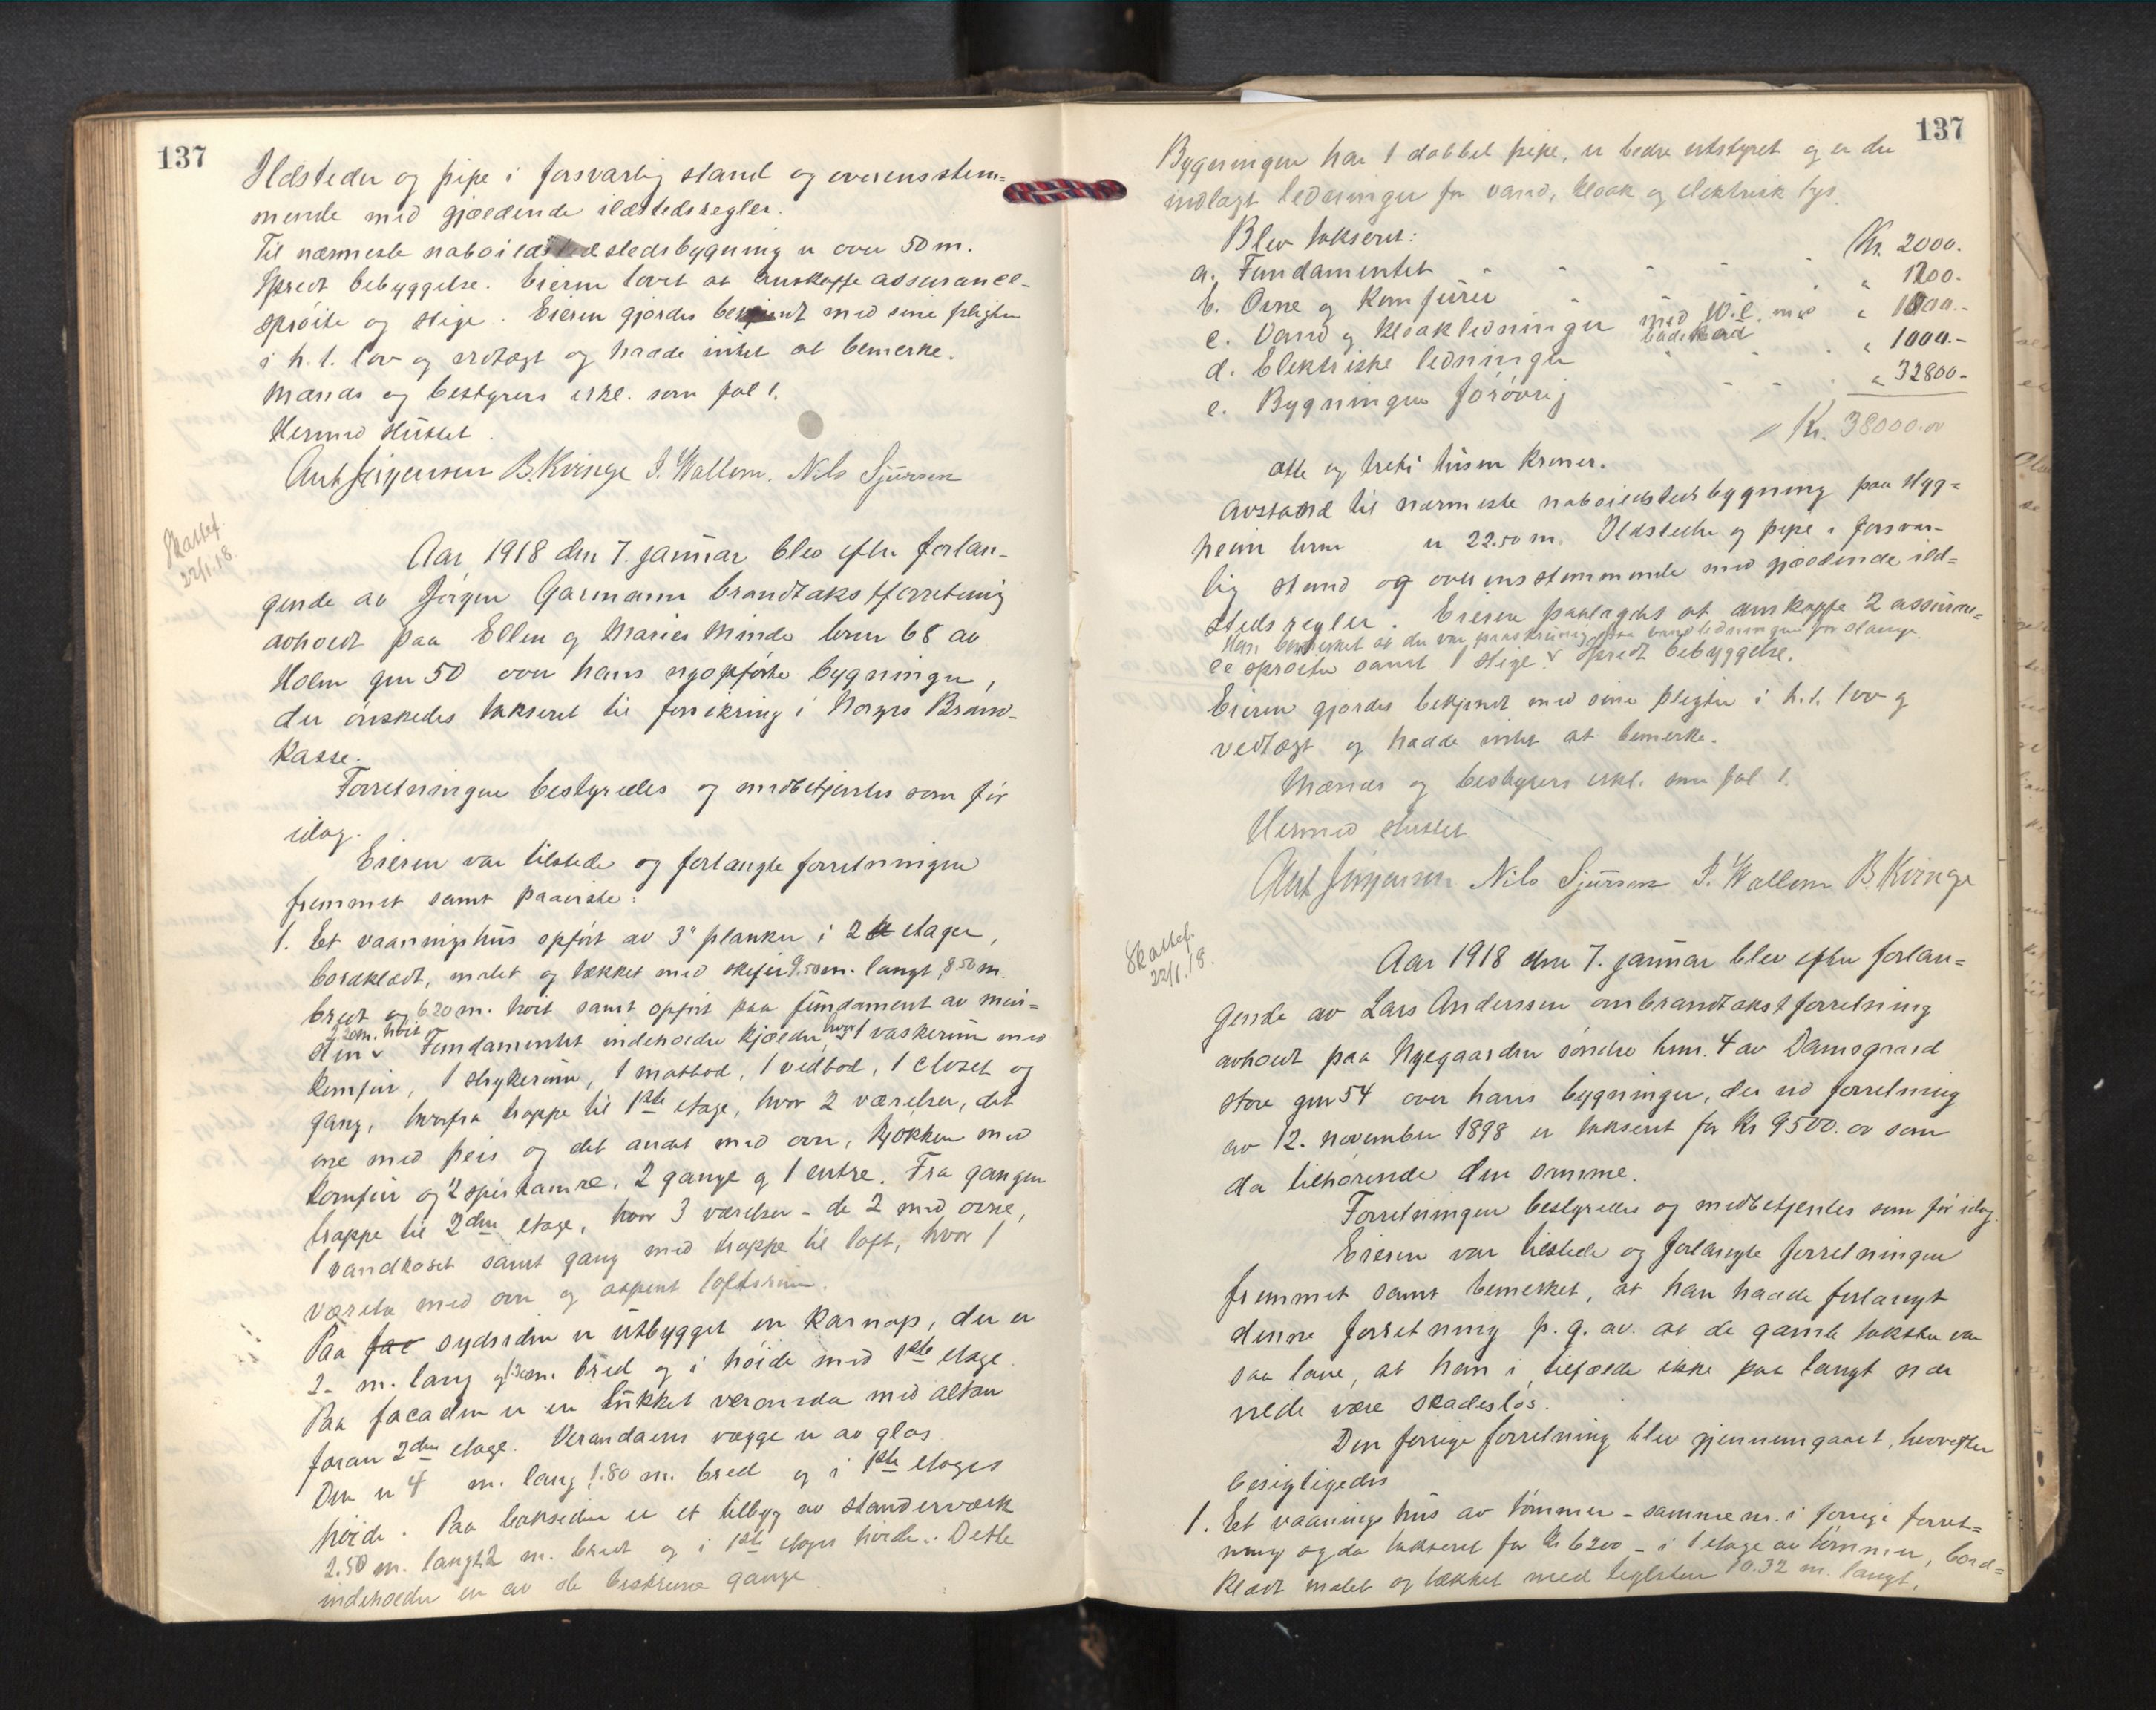 137
Ildsteder og pipe i forsvarlig stand og overensstem=
mende med gjældende ildstedsregler.
Til nærmeste naboildstedsbygning er over 50 m.
Spredt bebyggelse. Eieren lovet at anskaffe assurance-
sprøite og stige. Eieren gjordes bekjendt med sine pligter
i h. t. lov og vedtægt og hadde intet at bemerke.
Mænds og bestyrers erkl. som fol 1.
Hermed sluttet.
Ant Jørgensen B. Kvinge I. Wallem. Nils Sjursen
Skattef.
22/1.18.
Aar 1918 den 7. januar blev efter forlan-
gende av Jørgen Garmann brandtakstforretning
avholdt paa Ellen og Maries Minde brnr 68 av
Holen gnr 50 over hans nyopførte bygninger,
der ønskedes takseret til forsikring i Norges Brand-
kasse.
Forretningen bestyredes og medbetjentes som før
idag.
Eieren var tilstede og forlangte forretningen
fremmet samt paaviste:
1. Et vaaningshus opført av 3" planker i 2 etager,
bordklædt, malet og tækket med skifer 9.50 m. langt, 8.50 m.
bredt og 6.20 m. høit samt opført paa fundament av mur=
2.20 m. høit
sten. Fundamentet indeholder kjælder, hvor 1 vaskerum med
komfur, 1 strykerum, 1 matbod, 1 vedbod, 1 closet og
gang, hvorfra trappe til 1ste etage, hvor 2 værelser, det
ene med peis og det andet med ovn, kjøkken med
komfur og 2 spiskamre, 2 gange og 1 entre. Fra gangen
trappe til 2den etage, hvor 3 værelser - de 2 med ovne,
1 vandkloset samt gang med trappe til loft, hvor 1
værelse med ovn og aapent loftsrum.
Paa fac sydsiden er utbygget en karnap, der er
2- m. lang og m. bred og i høide med 1ste etage.
Paa facaden er en lukket veranda med altan
foran 2den etage. Verandaens vægge er av glas.
Den er 4 m. lang 1.80 m. bred og i 1ste etages
høide. Paa baksiden er et tilbyg av standerværk
2.50 m. langt 2 m. bredt og i 1ste etages høide. Dette
indeholder en av de beskrevne gange.
137
Bygningen har 1 dobbel pipe, er bedre utstyret og er der
indlagt ledninger for vand, kloak og elektrisk lys.
Blev takseret:
a. Fundamentet Kr. 2000.
b. Ovne og komfurer " 1200.
c. Vand og kloakledninger med W.C. med badekar " 1000.-
d. Elektriske ledninger " 1000.-
e. Bygningen forøvrig " 32800-
Kr. 38000.00
otte og treti tusen kroner.
Avstand til nærmeste naboildstedsbygning paa Hyg=
heim brnr er 22.50 m. Ildsteder og pipe i forsvar-
lig stand og overensstemmende med gjældende ild=
stedsregler. Eieren paalagdes at anskaffe 2 assuran=
Han bemerket at der var paaskruing paa vandledningen for slange.
ce sprøiter samt 1 stige. Spredt bebyggelse.
Eieren gjordes bekjendt med sine pligter i h. t. lov og
vedtægt og hadde intet at bemerke.
Mænds og bestyrers erkl. som fol 1.
Hermed sluttet
Ant Jørgensen Nils Sjursen I. Wallem B Kvinge
Skattef.
22/1.18.
Aar 1918 den 7. januar blev efter forlan=
gende av Lars Anderssen ombrandtakstforretning
avholdt paa Nygaarden søndre brnr. 4 av Damsgaard
store gnr 54 over hans bygninger, der ved forretning
av 12. november 1898 er takseret for Kr 9500.00 som
da tilhørende den samme.
Forretningen bestyredes og medbetjentes som før idag.
Eieren var tilstede og forlangte forretningen
fremmet samt bemerket, at han hadde forlangt
denne forretning p. g. av. at de gamle takster var
saa lave, at han i tilfælde ikke paa langt nær
vilde være skadesløs.
Den forrige forretning blev gjennemgaaet, hvorefter
besigtigedes
1. Et vaaningshus av tømmer - samme nr. i forrige forret=
ning og da takseret for Kr 6200 - i 1 etage av tømmer, bord=
klædt malet og tækket med teglsten 10.32 m. langt,